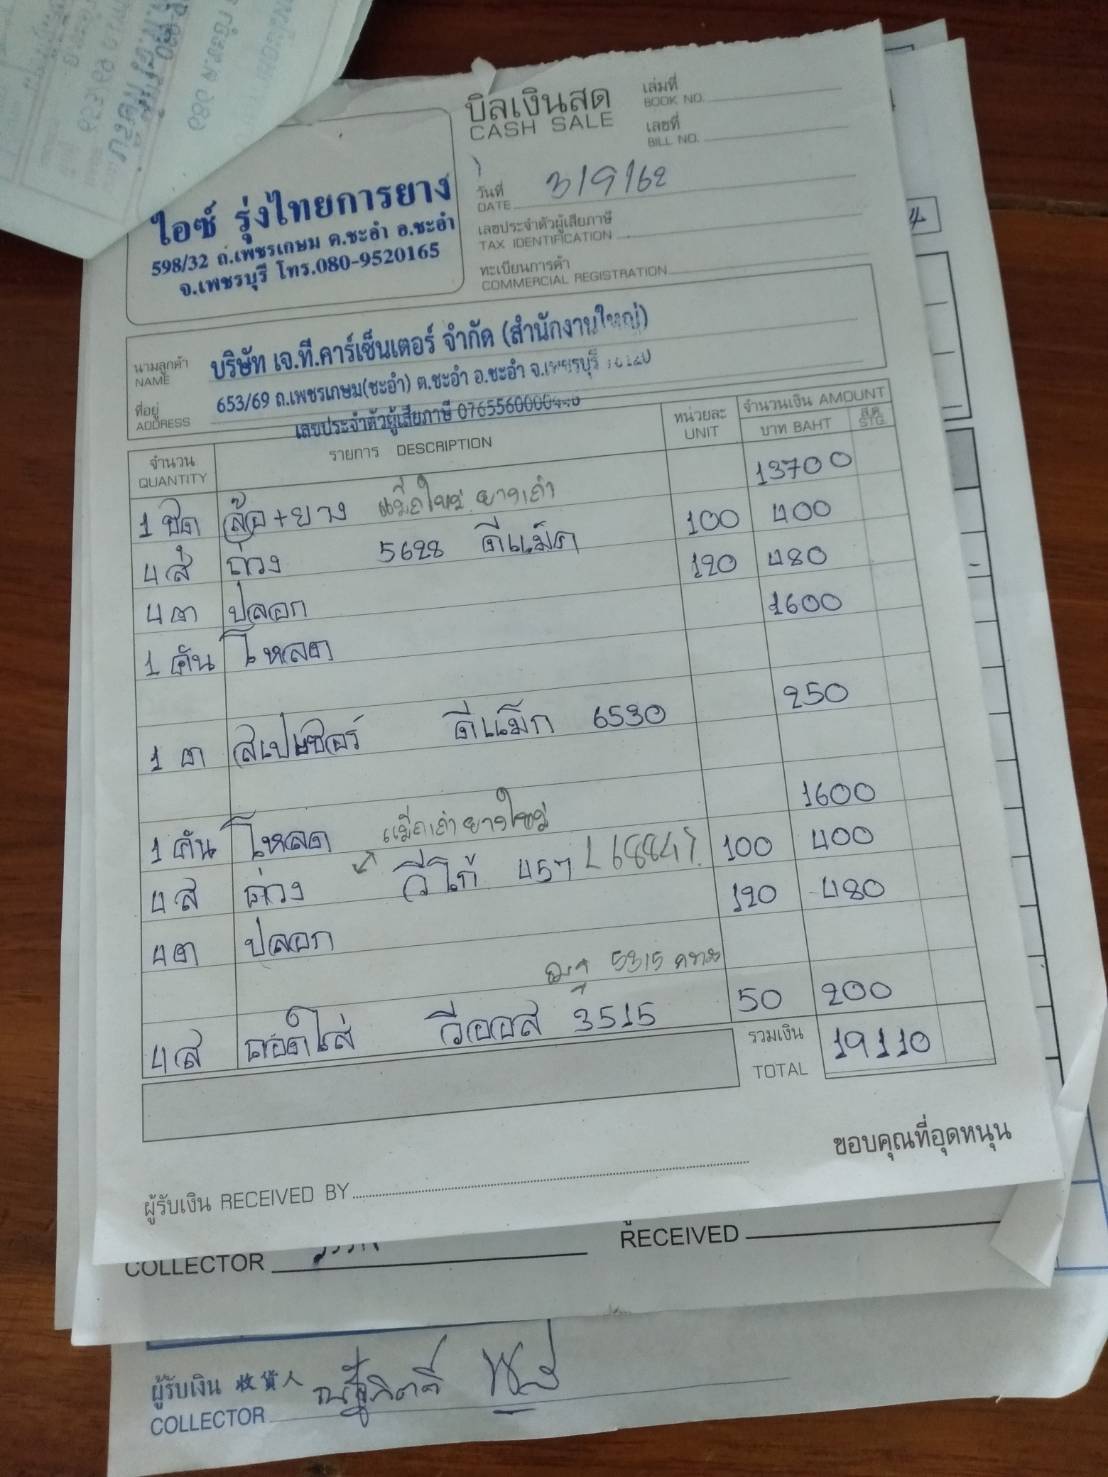 บิลเงินสด
CASH SALE
เล่มที่
BOOK NO.
เลขที่
BILL NO.
วันที่ 3/9/62
DATE
เลขประจำตัวผู้เสียภาษี
TAX IDENTIFICATION
ทะเบียนการค้า
COMMERCIAL REGISTRATION
ไอซ์ รุ่งไทยการยาง
598/32 ถ.เพชรเกษม ต.ชะอำ อ.ชะอำ
จ.เพชรบุรี โทร.080-9520165
นามลูกค้า
NAME
บริษัท เจ.ที.คาร์เซ็นเตอร์ จำกัด (สำนักงานใหญ่)
ที่อยู่
ADDRESS
653/69 ถ.เพชรเกษม(ชะอำ) ต.ชะอำ อ.ชะอำ จ.เพชรบุรี 76120
เลขประจำตัวผู้เสียภาษี
จำนวน
QUANTITY
รายการ DESCRIPTION
หน่วยละ
UNIT
จำนวนเงิน AMOUNT
บาท BAHT
ส.ต.
STG.
1 ชุด ล้อ+ยาง แม็กใหม่ ยางเก่า 13700
4 ส ถ่วง 5628 ดีแม็ก 100 400
4 ต ปลอก 120 480
1 คัน โหลด 1600
1 ต สเปเซอร์ ดีแม็ก 6530 250
1 คัน โหลด แม็กเก่า ยางใหม่ 1600
4 ส ถ่วง วีโก้ 457 100 400
4 ต ปลอก 120 480
5315
4 ส ถอดใส่ วีออส 3515 50 200
รวมเงิน
TOTAL
19110
ขอบคุณที่อุดหนุน
ผู้รับเงิน RECEIVED BY
COLLECTOR
RECEIVED
ผู้รับเงิน 收貨人
COLLECTOR